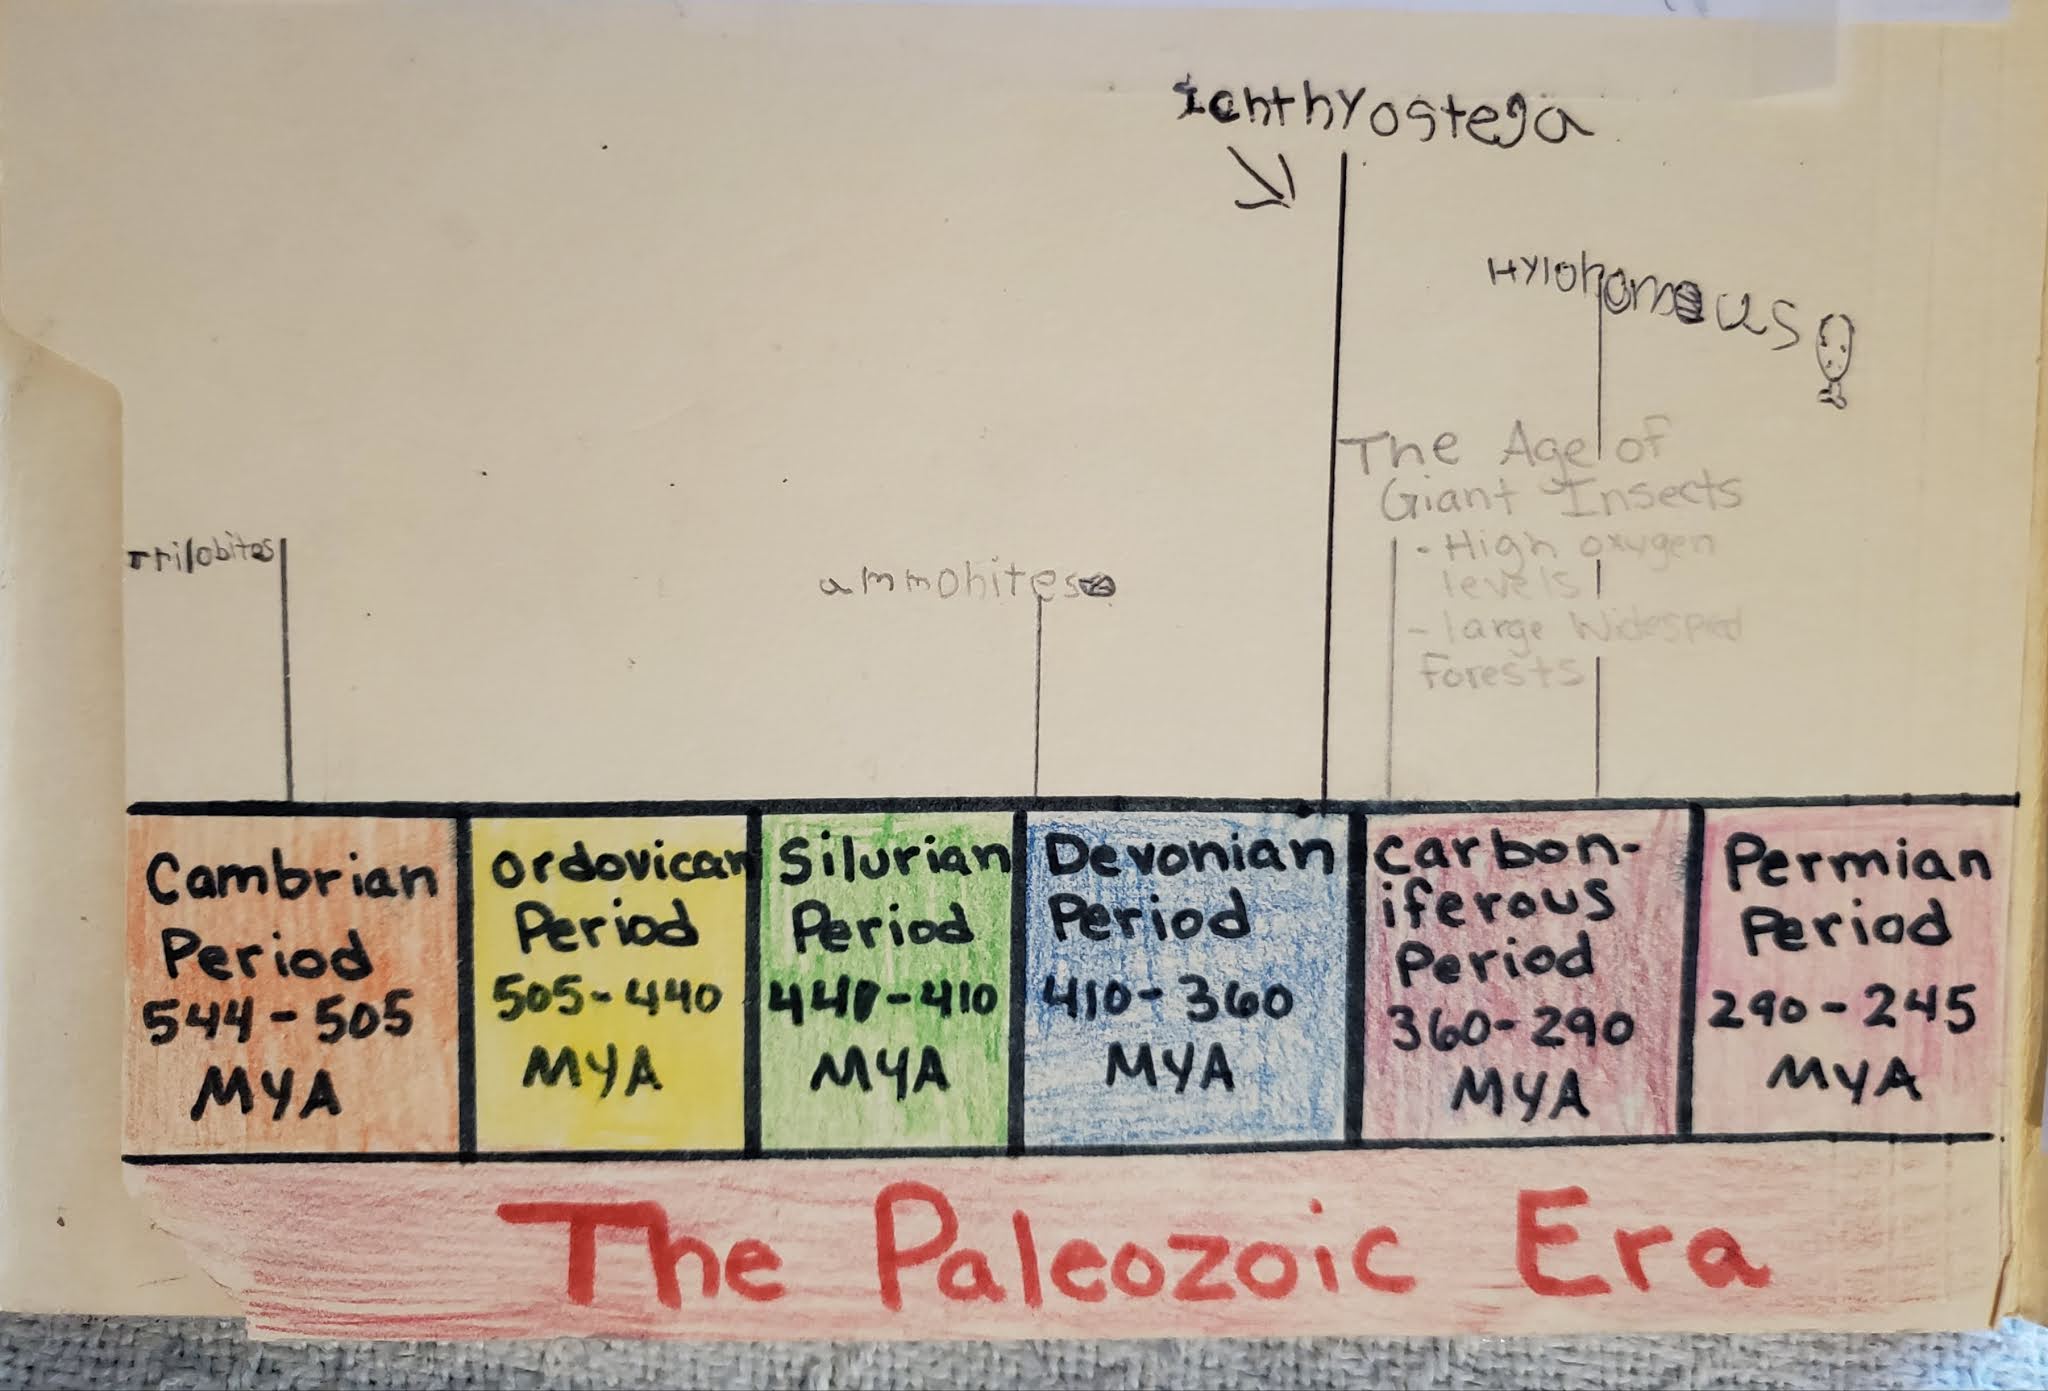 Ichthyostega
Hylonomous
The Age of
Giant Insects
- High oxygen
levels
- large Widespred
Forests
Trilobites
ammonites
Cambrian
Period
544-505
MYA
Ordovican
Period
505-440
MYA
Silurian
Period
440-410
MYA
Devonian
Period
410-360
MYA
Carbon-
iferous
Period
360-290
MYA
Permian
Period
290-245
MYA
The Paleozoic Era